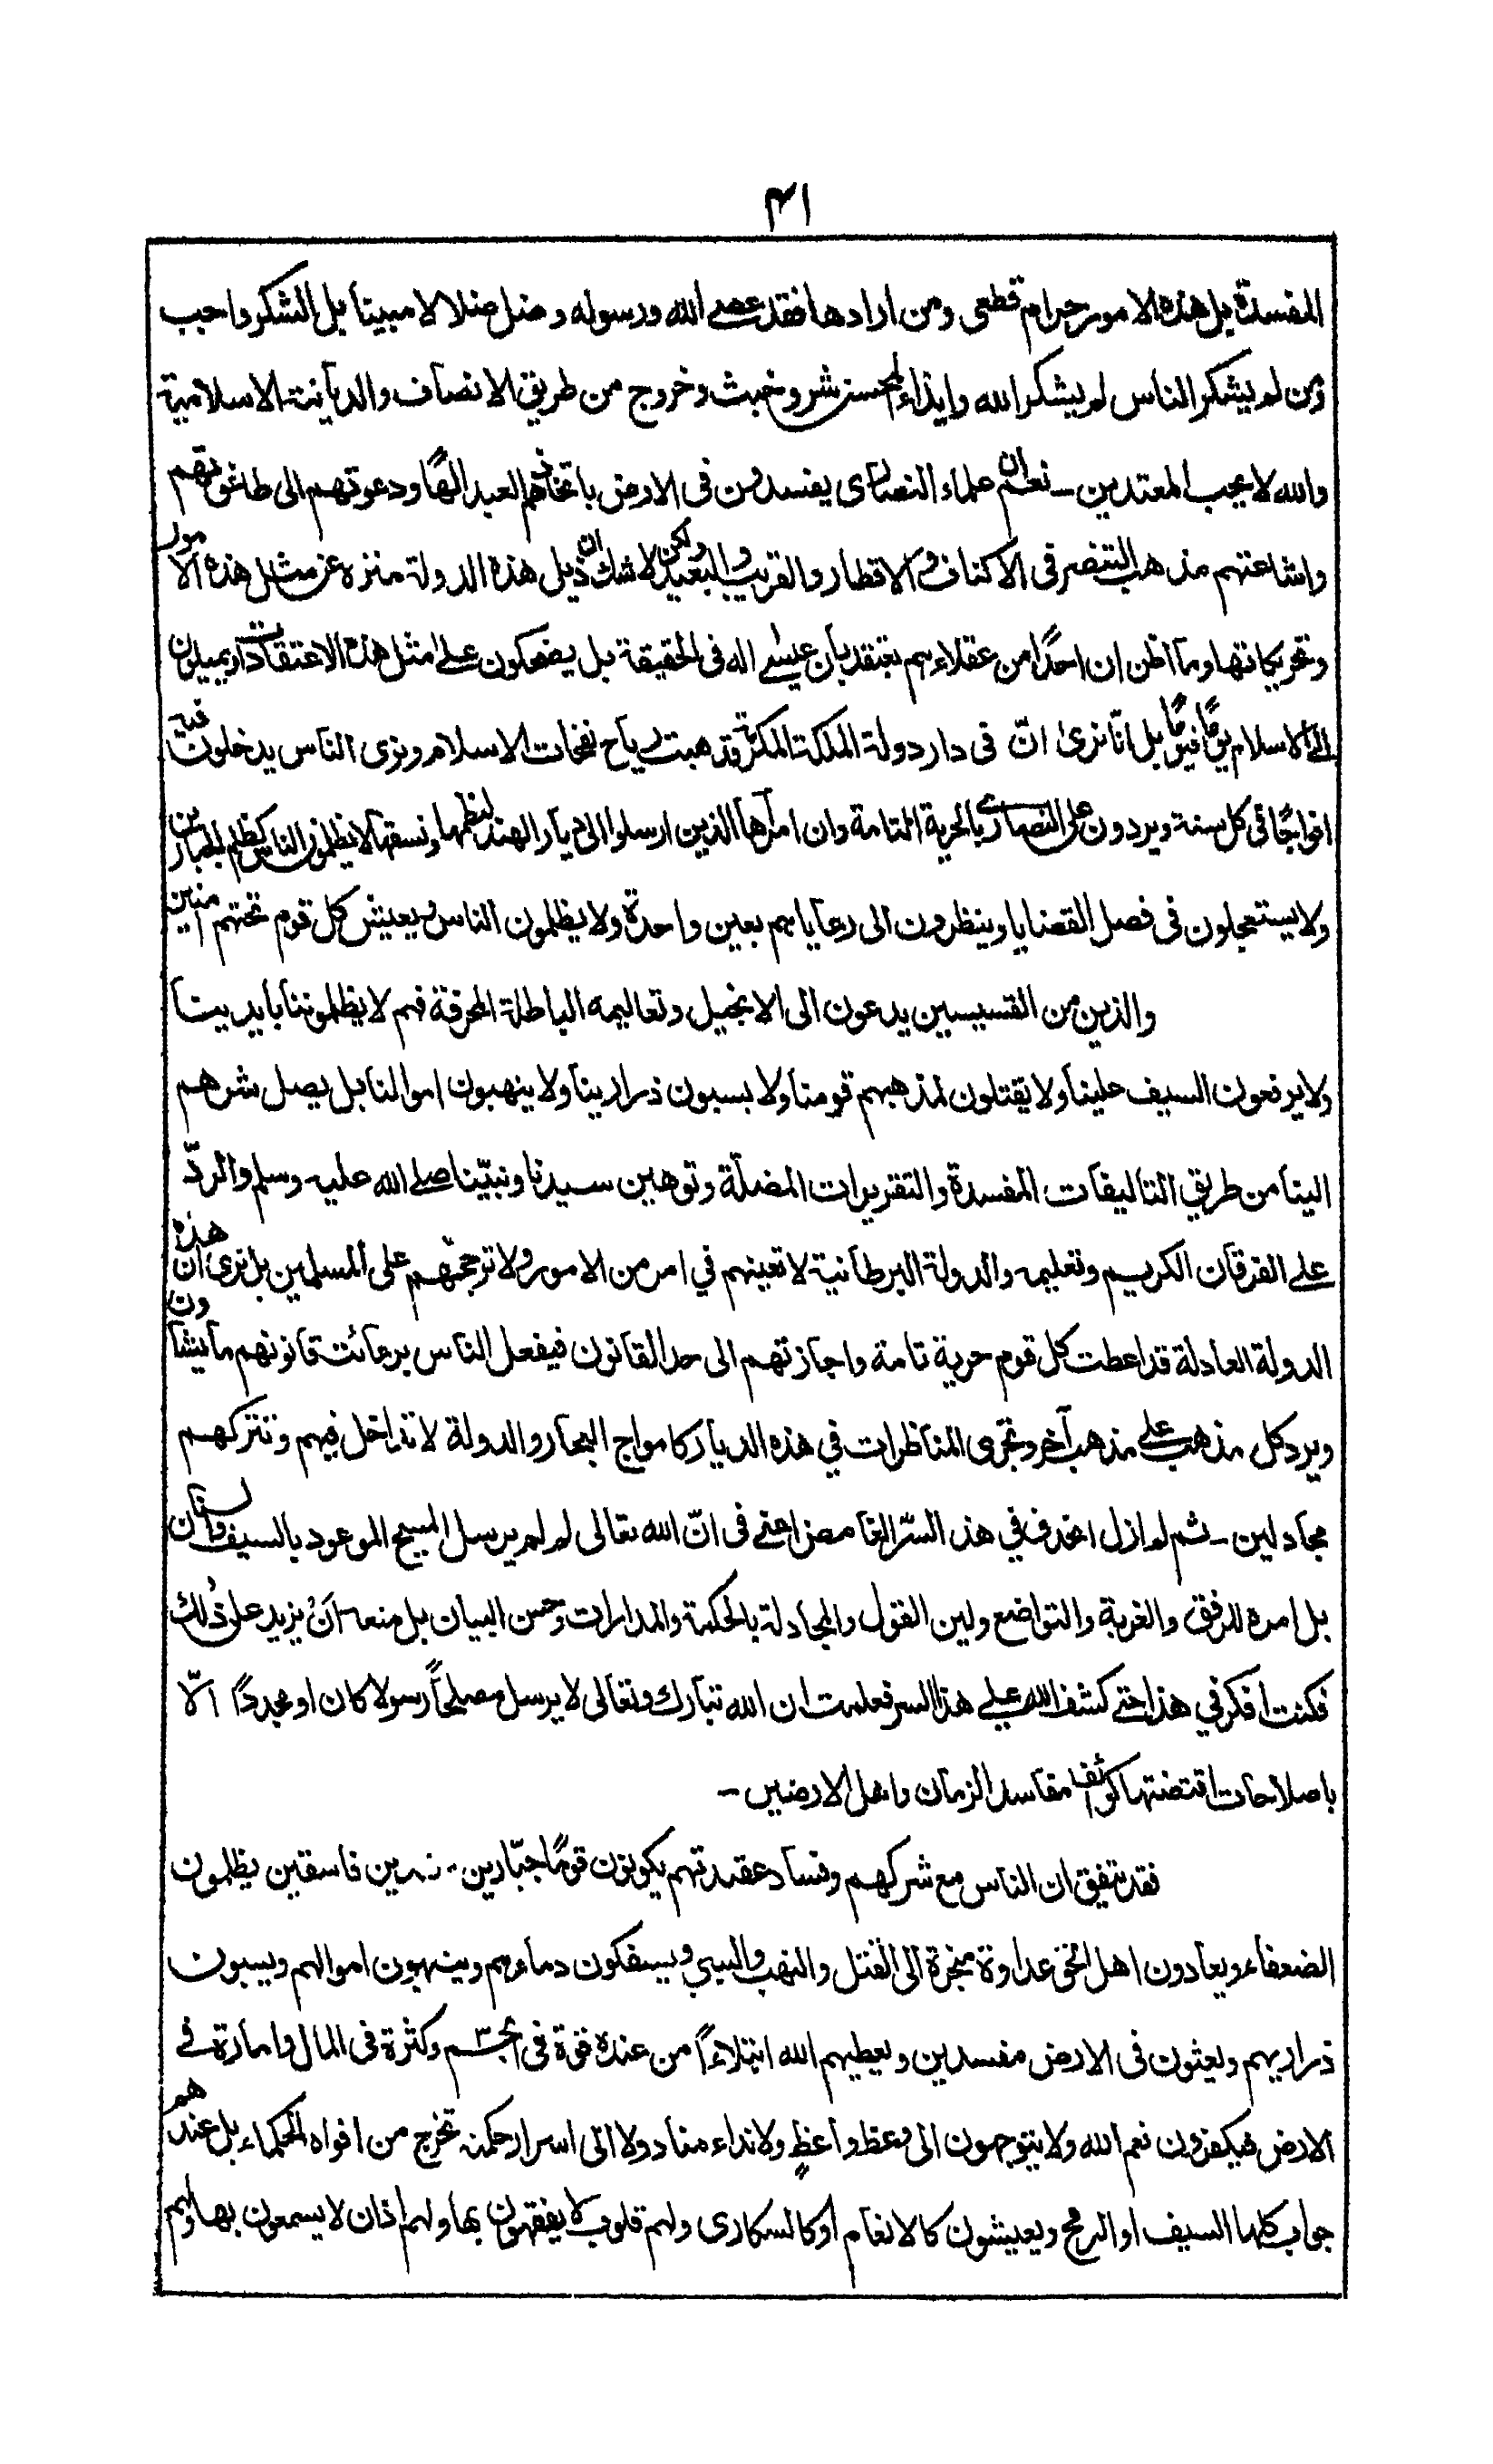 ۴۱
المفسدة بل هذه الامور حرام قطعی ومن ارادها فقد عصے الله ورسوله وضل ضلالا مبینا بل الشکر واجب
ومن لم یشکر الناس لم یشکر الله وایذاء المحسن شر وخبث وخروج من طریق الانصاف والدیانة الاسلامیة
والله لا یحب المعتدین ـ نعم ان علماء النصاری یفسدون فی الارض باتخاذهم العبد الٰهًا ودعوتهم الی طاغوتهم
واشاعتهم مذهب التنصر فی الاکناف والاقطار والقریب والبعید ولکن لا شك ان ذیل هذه الدولة منزه عن مثل هذه الامور
وتحریکاتها وما اظن ان احدًا من عقلاءهم یعتقد بان عیسٰے اله فی الحقیقة بل یضحکون علے امثل هذه الاعتقادات ویمیلون
الے الاسلام یومًا فیومًا بل انّا نری انّ فی دار دولة الملکة المکرمة قد هبت ریاح نفحات الاسلام ونری الناس یدخلون فیه
افواجًا فی کل سنة ویردون علی النصاری بالحریة التامة وان امراءها الذین ارسلوا الی دیار الهند لنظمها ونسقها لا یظلمون الناس کظلم الجبارین
ولا یستعجلون فی فصل القضایا وینظرون الی رعایاهم بعین واحدة ولا یظلمون الناس ویعیش کل قوم تحتهم آمنین
والذین من القسیسین یدعون الی الانجیل وتعالیمه الباطلة المحرفة فهم لا یظلموننا بایدینا
ولا یرفعون السیف علینا ولا یقتلون لمذهبهم قومنا ولا یسبون ذرارینا ولا ینهبون اموالنا بل یصل شرهم
الینا من طریق التالیفات المفسدة والتقریرات المضلّة وتوهین سیدنا ونبیّنا صلے الله علیه وسلم والردّ
علے الفرقان الکریم وتعلیمه والدولة البرطانیة لا تعینهم فی امر من الامور ولا ترجحهم علی المسلمین بل نری ان هذه
الدولة العادلة قد اعطت کل قوم حریة تامة واجازتهم الی حد القانون فیفعل الناس برعائت قانونهم ما یشاءون
ویرد کل مذهب علے مذهب آخر وتجری المناظرات فی هذه الدیار کامواج البحار والدولة لا تداخل فیهم وتترکهم
مجادلین ـ ثم لم ازل افکر فی هذا السّر الغامض اعنے فی انّ الله تعالی لم لم یرسل المسیح الموعود بالسیف والسنان
بل امره للرفق والغربة والتواضع ولین القول والمجادلة بالحکمة والمدارات وحسن البیان بل منعه اَنْ یزید علی ذٰلك
فکنت افکر فی هذا حتے کشف الله علے هذا السر فعلمت ان الله تبارك وتعالی لا یرسل مصلحًا رسولا کان او مجددًا الّا
باصلاحات اقتضتها کوائف مفاسد الزمان واهل الارضین ـ
فقد یتفق ان الناس مع شرکهم وفساد عقیدتهم یکونون قومًا جبّارین فاسقین یظلمون
الضعفاء ویعادون اهل الحق عداوة منجرة الی القتل والنهب والسبی ویسفکون دماءهم وینهبون اموالهم ویسبون
ذراریهم ویعثون فی الارض مفسدین ویعطیهم الله ابتلاءً من عنده قوة فی الجسم وکثرة فی المال وامارة فے
الارض فیکفرون نعم الله ولا یتوجهون الی وعظ واعظٍ ولا نداء مناد ولا الی اسرار حکمة تخرج من افواه الحکماء بل عندهم
جواب کلها السیف او الرمح ویعیشون کالانعام او کالسکاری ولهم قلوب لا یفقهون بها ولهم اذان لا یسمعون بها ولهم